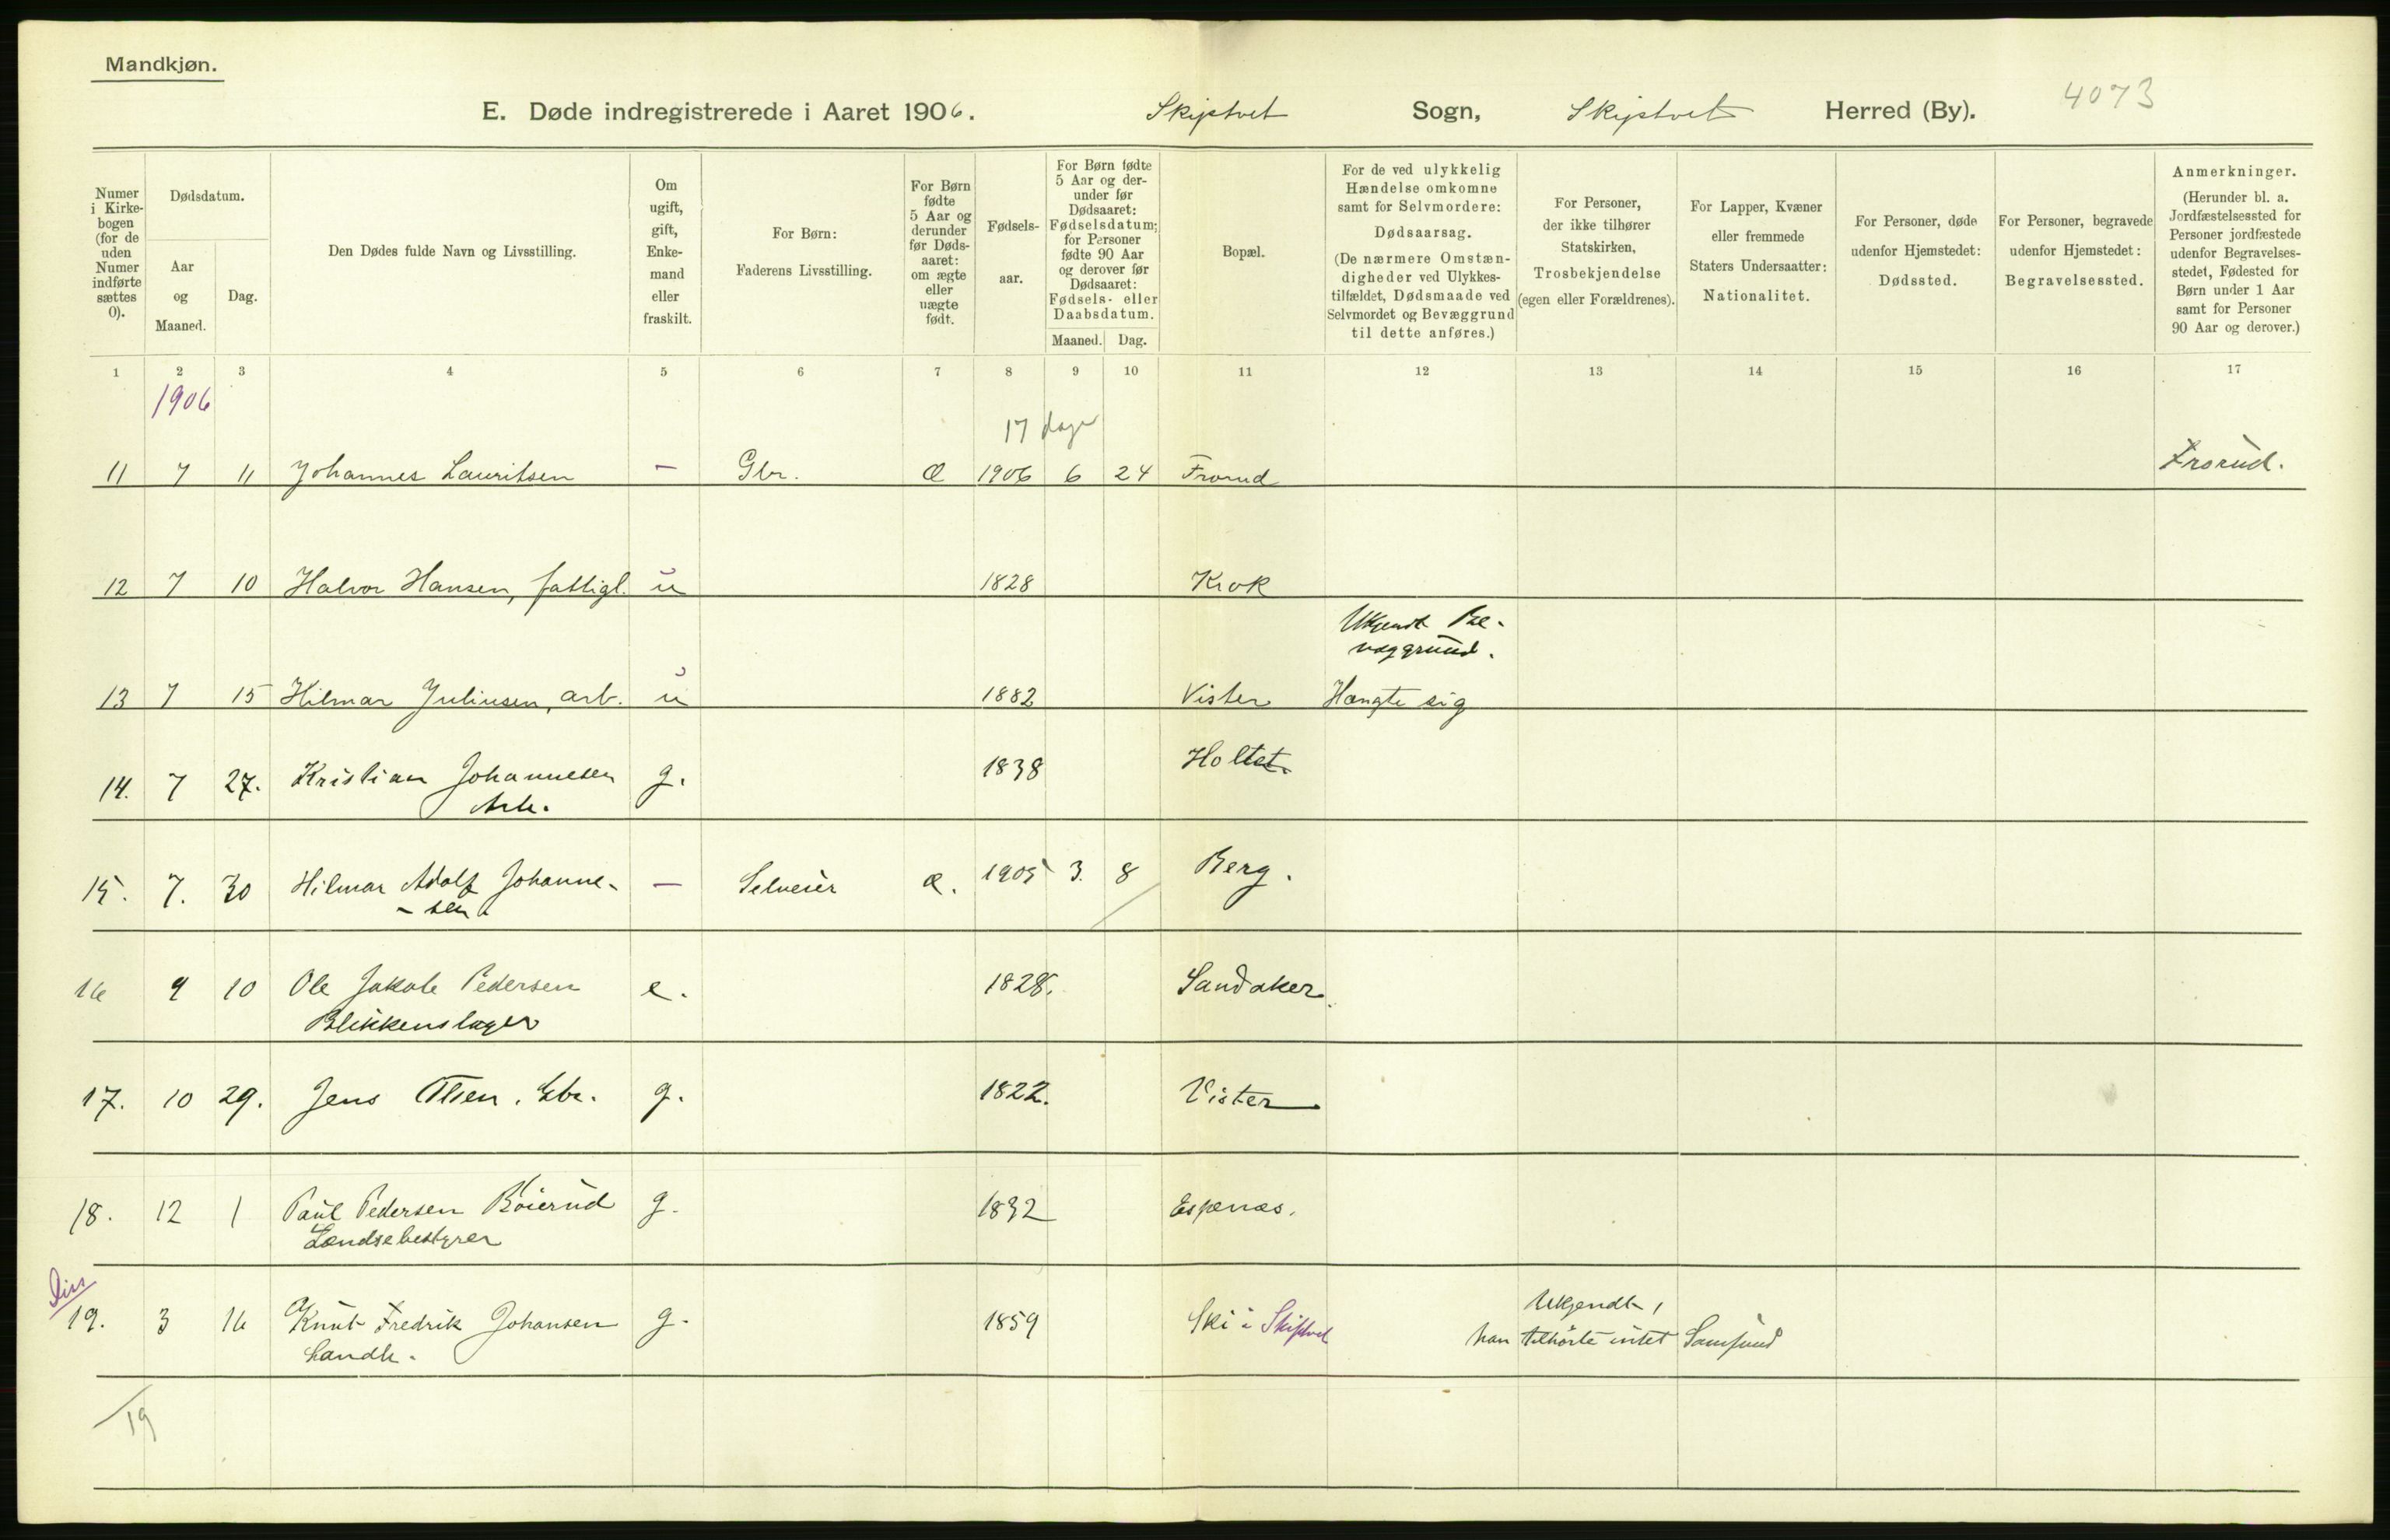 Mandkjøn.
E. Døde indregistrerede i Aaret 1906. Skiptvet Sogn, Skiptvet Herred (By). 4073
Numer i Kirkebogen (for de uden Numer indførte sættes 0).
Dødsdatum.
Aar og Maaned.
Dag.
Den Dødes fulde Navn og Livsstilling.
Om ugift, gift, Enkemand eller fraskilt.
For Børn: Faderens Livsstilling.
For Børn fødte 5 Aar og derunder før Dødsaaret: om ægte eller uægte født.
Fødselsaar.
For Børn fødte 5 Aar og derunder før Dødsaaret: Fødselsdatum; for Personer fødte 90 Aar og derover før Dødsaaret: Fødsels- eller Daabsdatum.
Maaned. Dag.
Bopæl.
For de ved ulykkelig Hændelse omkomne samt for Selvmordere: Dødsaarsag. (De nærmere Omstændigheder ved Ulykkestilfældet, Dødsmaade ved Selvmordet og Bevæggrund til dette anføres.)
For Personer, der ikke tilhører Statskirken, Trosbekjendelse (egen eller Forældrenes).
For Lapper, Kvæner eller fremmede Staters Undersaatter: Nationalitet.
For Personer, døde udenfor Hjemstedet: Dødssted.
For Personer, begravede udenfor Hjemstedet: Begravelsessted.
Anmerkninger. (Herunder bl. a. Jordfæstelsessted for Personer jordfæstede udenfor Begravelsesstedet, Fødested for Børn under 1 Aar samt for Personer 90 Aar og derover.)
1 2 3 4 5 6 7 8 9 10 11 12 13 14 15 16 17
1906
17 dage
11 7 11 Johannes Lauritsen — Gbr. Æ 1906 6 24 Frorud Frorud.
12 7 10 Halvor Hansen, fattigl. u 1828 Krok
Ukjendt Be-
væggrund.
13 7 15 Hilmar Juliusen, arb. u 1882 Vister Hængte sig
14. 7 27. Kristian Johannesen g. 1838 Holtet.
Arb.
15. 7. 30 Hilmar Adolf Johanne- — Selveier æ. 1905 3. 8 Berg.
- sen
16 9 10 Ole Jakob Pedersen e. 1828. Sandaker.
Blikkenslager
17. 10 29. Jens Olsen. Gbr. g. 1822. Vister
18. 12 1 Paul Pedersen Böierud g. 1832 Espenæs.
Lændsebestyrer
Diss
19. 3 16 Knut Fredrik Johansen g. 1859 Ski i Skiptvet Ukjendt,
Landh. han tilhörte intet Samfund
19